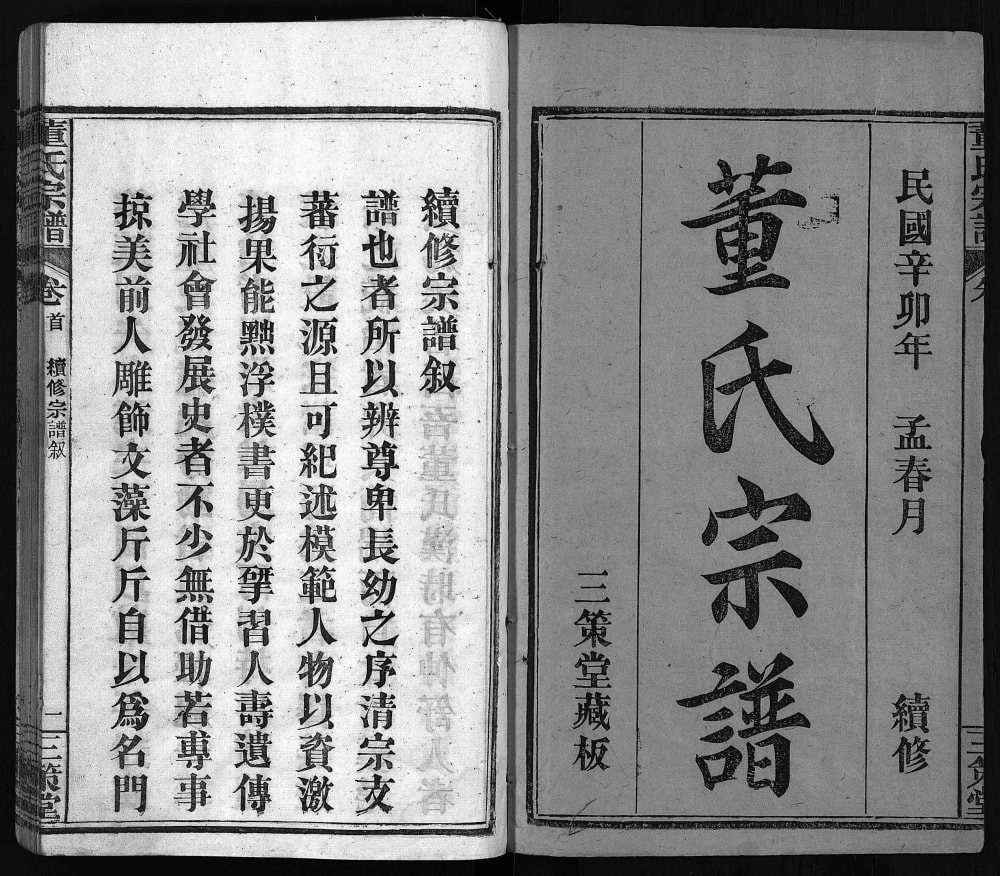 民國辛卯年 孟春月 續修
董氏宗譜
三策堂藏板
續修宗譜叙
譜也者所以辨尊卑長幼之序清宗支
蕃衍之源且可紀述模範人物以資激
揚果能黜浮樸書更於擘習人壽遺傳
學社會發展史者不少無借助若專事
掠美前人雕飾文藻斤斤自以為名門
董氏宗譜 卷首 續修宗譜叙 二 三策堂